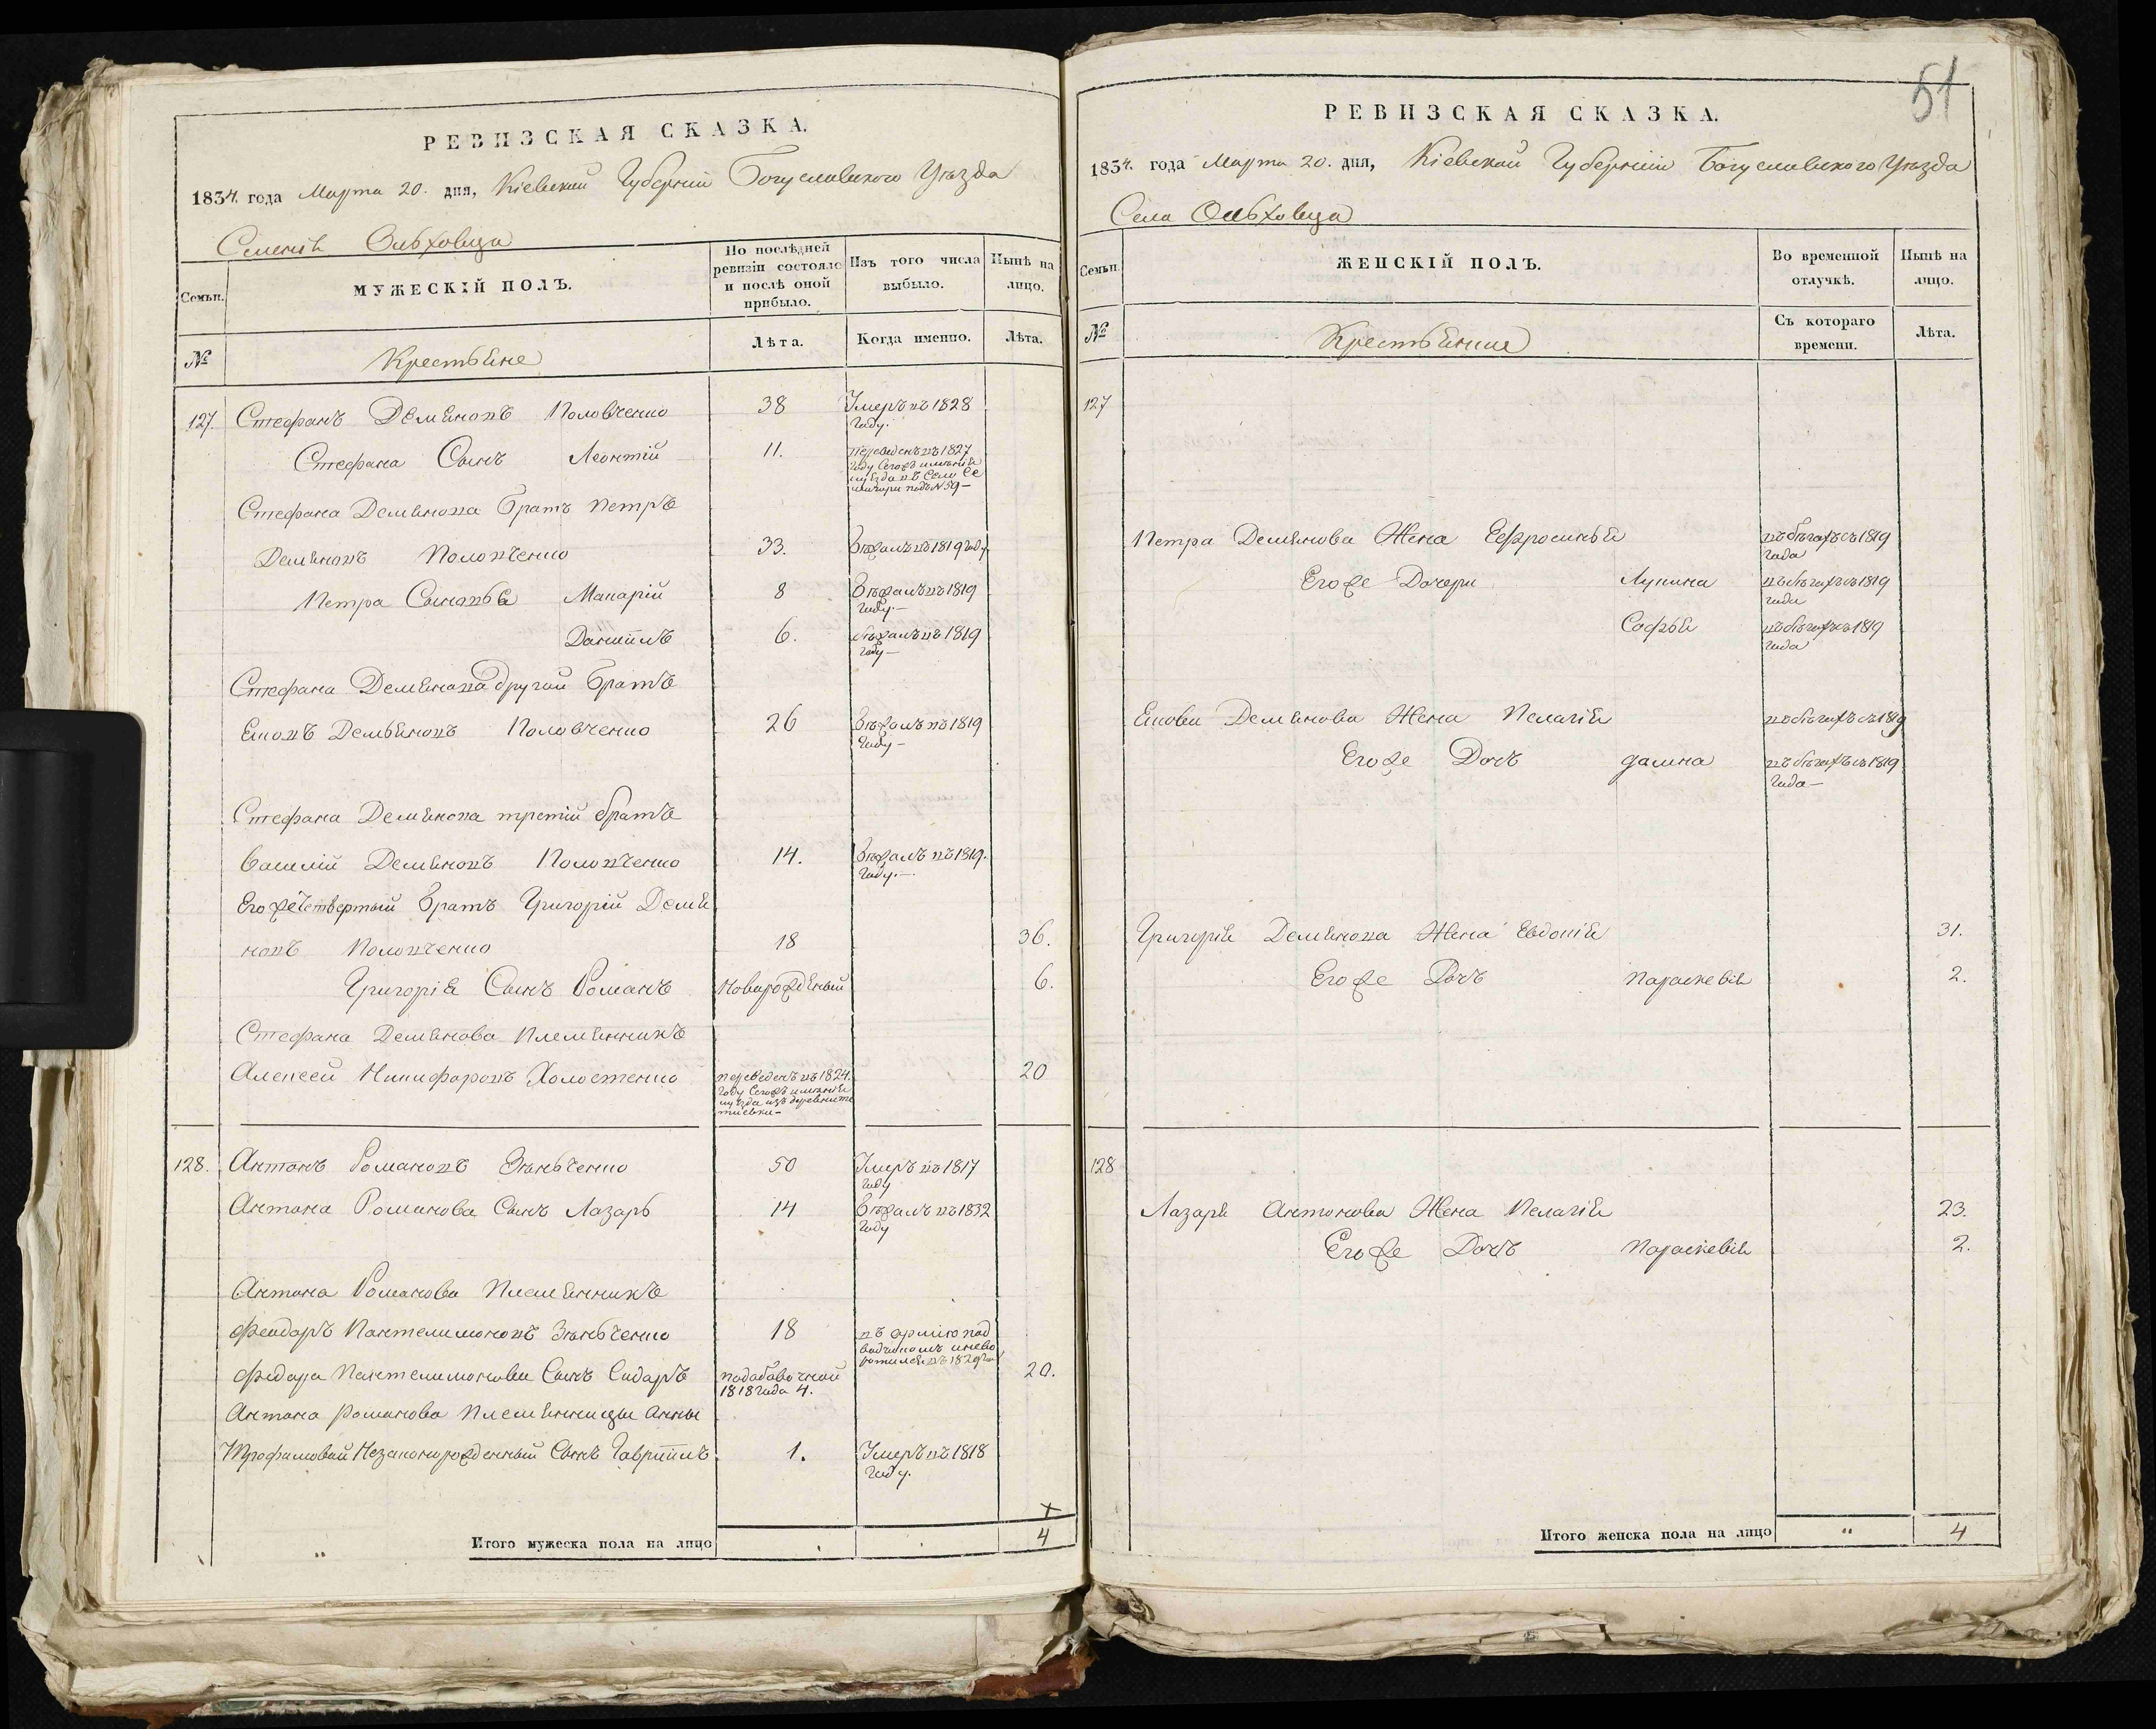 РЕВИЗСКАЯ СКАЗКА.
1834. года Марта 20. дня, Кіевской Губерніи Богуславского Уѣзда
Селенія Ольховца
Семьи.
МУЖЕСКІЙ ПОЛЪ.
По послѣдней ревизіи состояло и послѣ оной прибыло.
Изъ того числа выбыло.
Нынѣ на лицо.
№
Крестьяне
Лѣта.
Когда именно.
Лѣта.
127. Стефанъ Демяновъ Половченко 38 Умеръ въ 1828
году.
Стефана Сынъ Леонтій 11. переведенъ въ 1827
году Сегожъ имѣнія
уѣзда въ Село Се
подъ № 59 –
Стефана Демянова Братъ Петръ
Демяновъ Половченко 33. Бѣжалъ въ 1819 году
Петра Сыновья Макарій 8 Бѣжалъ въ 1819
году. –
Даніилъ 6. бѣжалъ въ 1819
году –
Стефана Демянова другой Братъ
Яковъ Демьяновъ Половченко 26 Бѣжалъ въ 1819
году –
Стефана Демянова третій братъ
Василій Демяновъ Половченко 14. Бѣжалъ въ 1819.
году. –
Егоже Четвертый Братъ Григорій Демя
новъ Половченко 18 36.
Григорія Сынъ Романъ Новорожденый 6.
Стефана Демянова Племянникъ
Алексей Никифоровъ Холостенко переведенъ въ 1824. 20
году Сегожъ имѣнія
уѣзда изъ деревни те
тиевки –
128. Антонъ Романовъ Зѣньченко 50 Умеръ въ 1817
году
Антона Романова Сынъ Лазарь 14 Бѣжалъ въ 1832
году
Антона Романова Племянникъ
Феодаръ Пантелимоновъ Зѣньченко 18 въ армію под
водчикомъ и нево
ротился въ 1829 го
Федора Пантелимонова Сынъ Сидаръ подобавочной 20.
1818 года 4.
Антона романова Племянницы Анны
Трофимовой Незаконорожденный Сынъ Гавріилъ 1. Умеръ въ 1818
году.
Итого мужеска пола на лицо 4
51
РЕВИЗСКАЯ СКАЗКА.
1834. года Марта 20. дня, Кіевской Губерніи Богуславского Уѣзда
Села Ольховца
Семьи.
ЖЕНСКІЙ ПОЛЪ.
Во временной отлучкѣ.
Нынѣ на лицо.
№
Крестьянки
Съ котораго времени.
Лѣта.
127
Петра Демянова Жена Ефросинья въ бѣгахъ съ 1819
года
Егоже Дочери Лукина въ бѣгахъ съ 1819
года
Софья въ бѣгахъ съ 1819
года
Якова Демянова Жена Пелагія въ бѣгахъ съ 1819
Егоже Дочь галина въ бѣгахъ съ 1819
года –
Григорія Демянова Жена Евдокія 31.
Егоже Дочь Параскевія 2.
128
Лазаря Антонова Жена Пелагія 23.
Егоже Дочь Параскевія 2.
Итого женска пола на лицо " 4